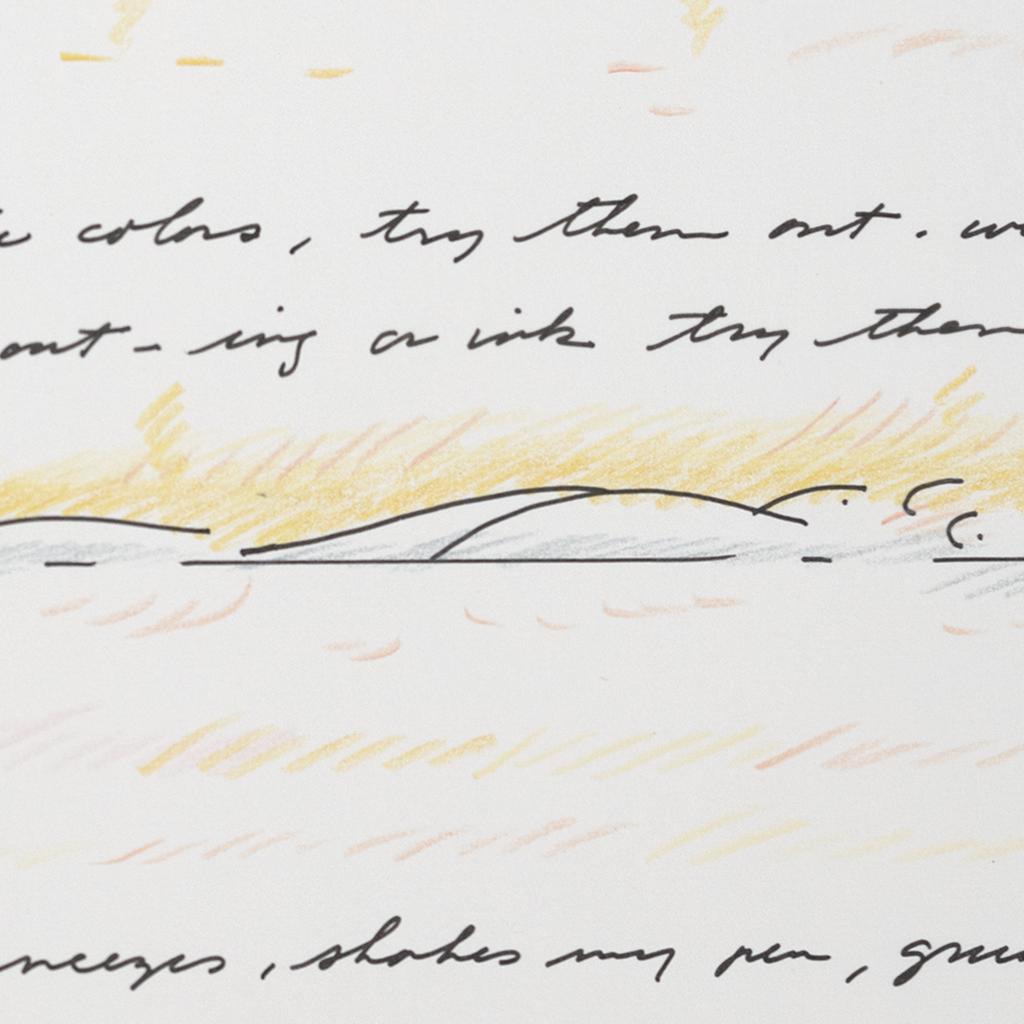 colors, try them out. 
out-ing or ink try them
neezes, shakes my pen,